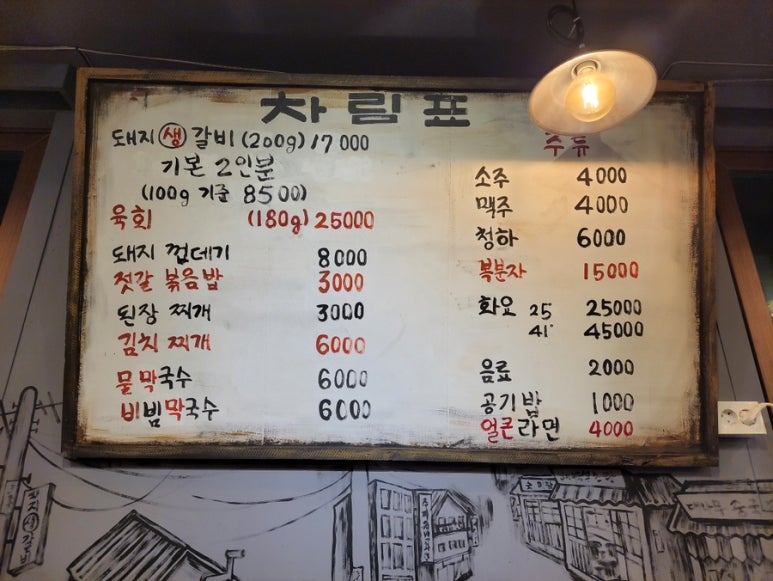 차림표
돼지 생 갈비 (200g) 17000
기본 2인분
(100g 기준 8500)
육회 (180g) 25000
돼지 껍데기 8000
젓갈 볶음밥 3000
된장 찌개 3000
김치 찌개 6000
물막국수 6000
비빔막국수 6000
주류
소주 4000
맥주 4000
청하 6000
복분자 15000
화요 25 25000
41 45000
음료 2000
공기밥 1000
얼큰라면 4000
돼지생갈비